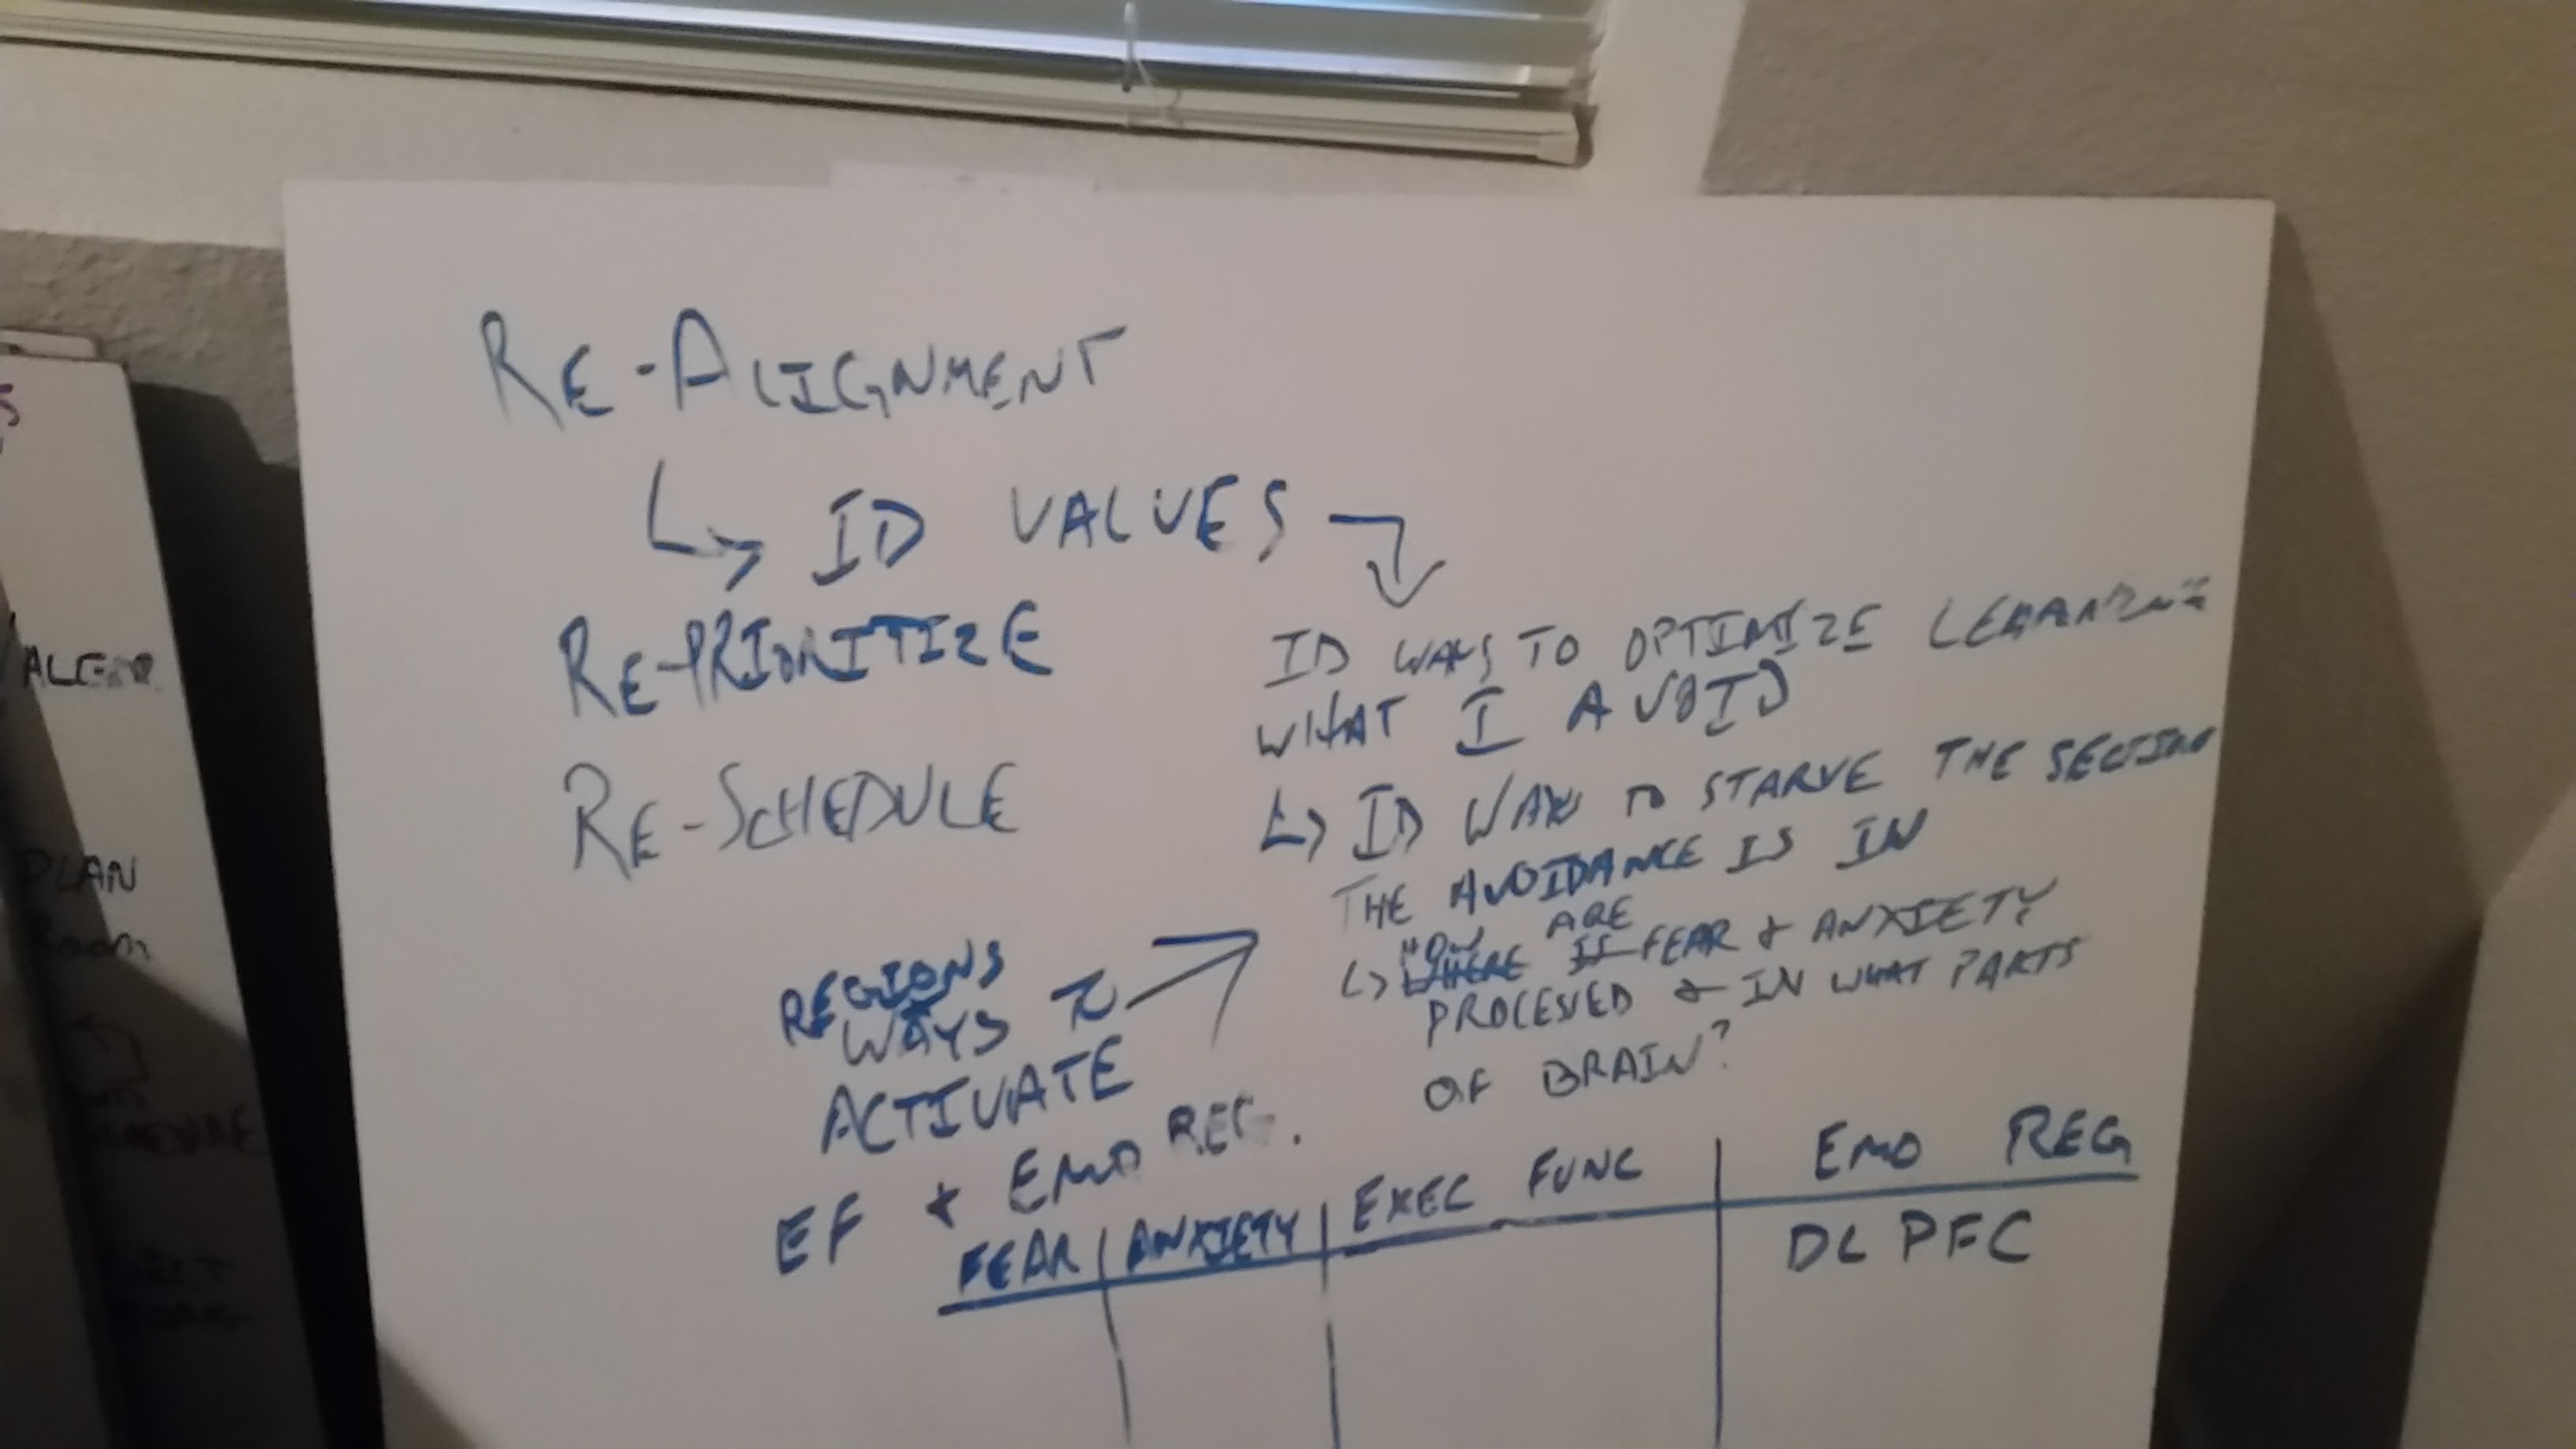 RE-ALIGNMENT
↳ ID VALUES
RE-PRIORITIZE
RE-SCHEDULE
ID WAYS TO OPTIMIZE LEARNING
WHAT I AVOID
↳ ID WAYS TO STARVE THE SECTION
THE AVOIDANCE IS IN
HOW ARE
↳ WHERE IS FEAR & ANXIETY
PROCESSED & IN WHAT PARTS
OF BRAIN?
REGIONS
WAYS TO
ACTIVATE
EF & EMO REG.
FEAR | ANXIETY | EXEC FUNC | EMO REG
DL PFC
PLAN
ROOM
SCHEDULE